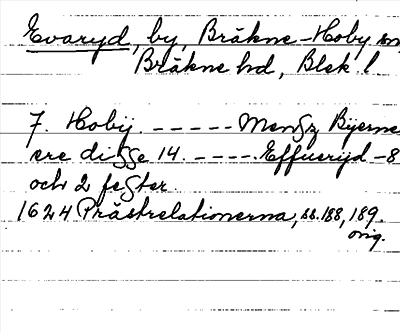 Evaryd, by, Bräkne-Hoby sn
Bräkne hd, Blek. l
7. Hobÿ. ----- Mensz Byerne
ere disse 14. -----. Effuerijd -8
och 2 fester.
1624 Prästrelationerna, ss. 188, 189.
orig.